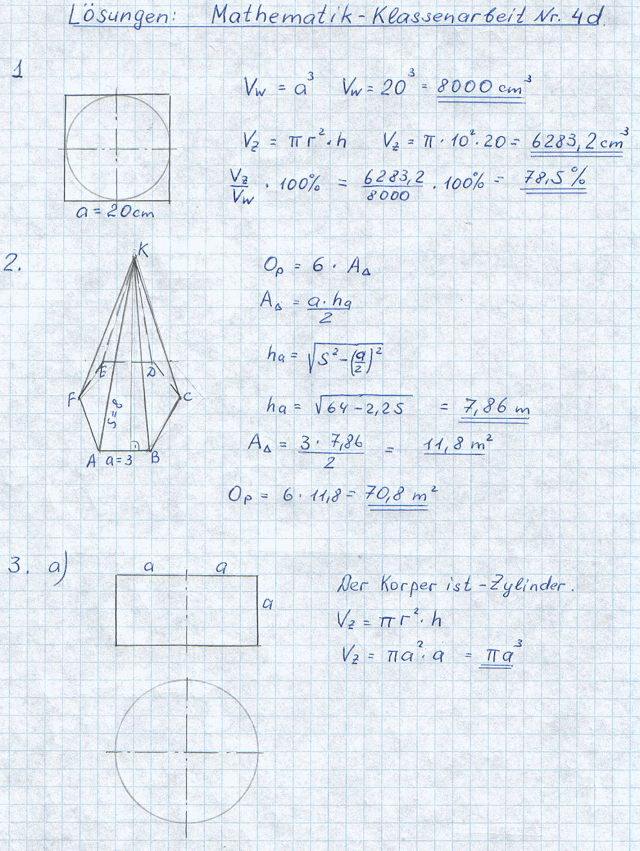 Lösungen: Mathematik-Klassenarbeit Nr. 4d.
1
V_W = a³ V_W = 20³ = 8000 cm³
V_Z = π r² · h V_Z = π · 10² · 20 = 6283,2 cm³
V_Z/V_W · 100% = 6283,2/8000 · 100% = 78,5%
a = 20cm
2.
K
E D
F C
S=8
A a=3 B
O_p = 6 · A_Δ
A_Δ = a · ha/2
ha = √(S² - (a/2)²)
ha = √(64 - 2,25) = 7,86 m
A_Δ = 3 · 7,86/2 = 11,8 m²
O_p = 6 · 11,8 = 70,8 m²
3. a)
a a
a
Der Korper ist - Zylinder.
V_Z = π r² · h
V_Z = πa² · a = πa³